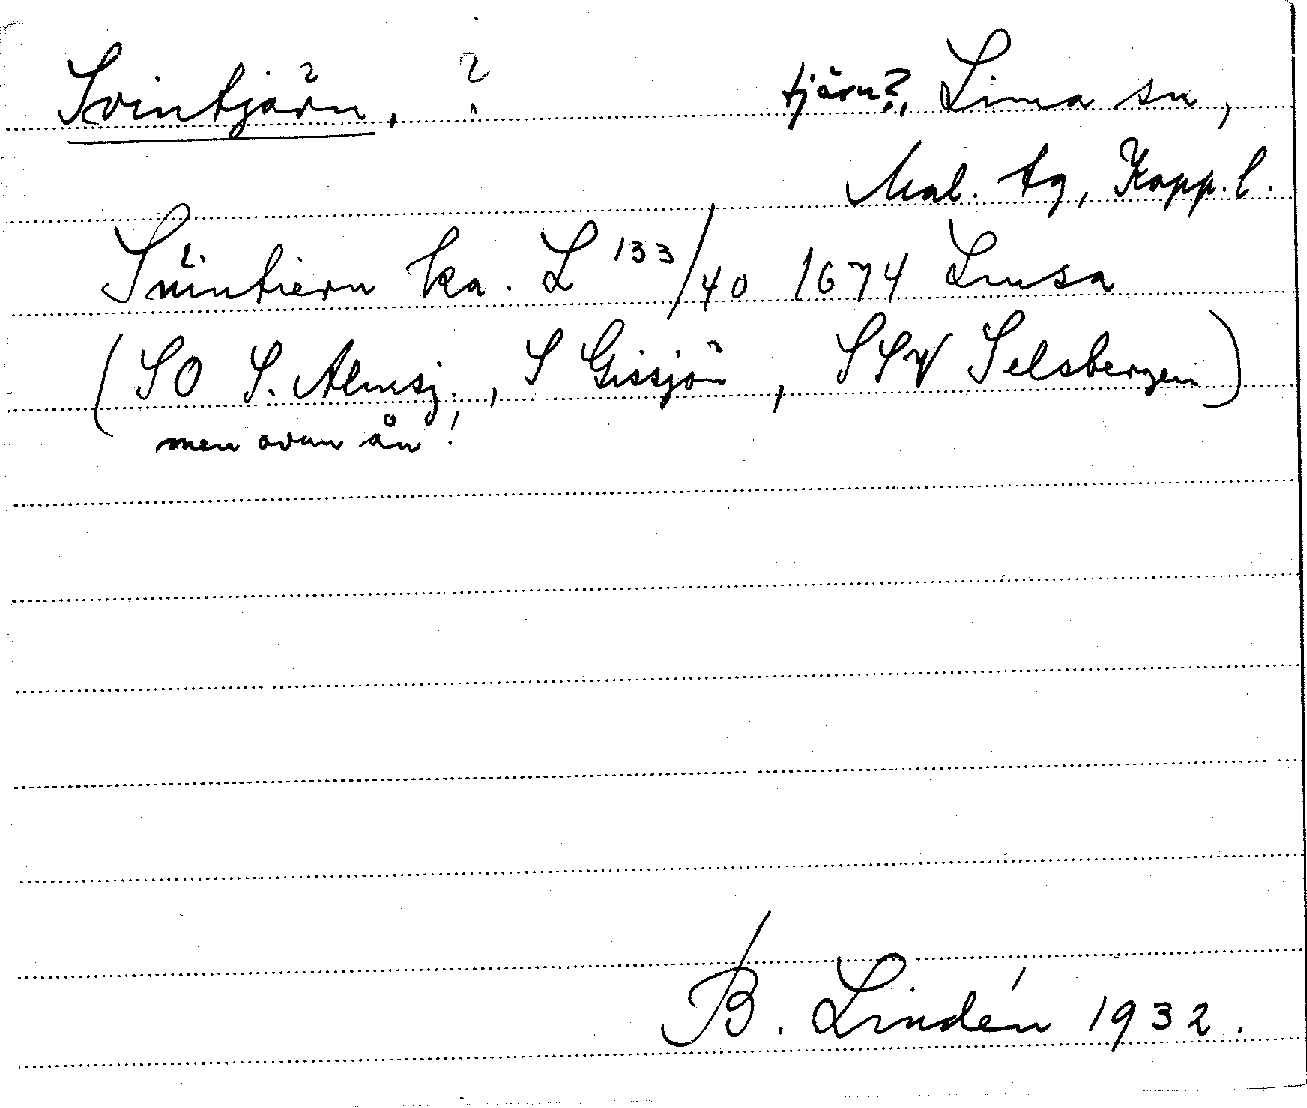 Svintjärn, ? tjärn?, Lima sn,
Mal. tg, Kopp. l.
Süintiern ka. L 133/40 1674 Limsa
(SO S. Almsj., S Gissjön, SSV Selsbergen)
men ovan ån!
B. Lindén 1932.